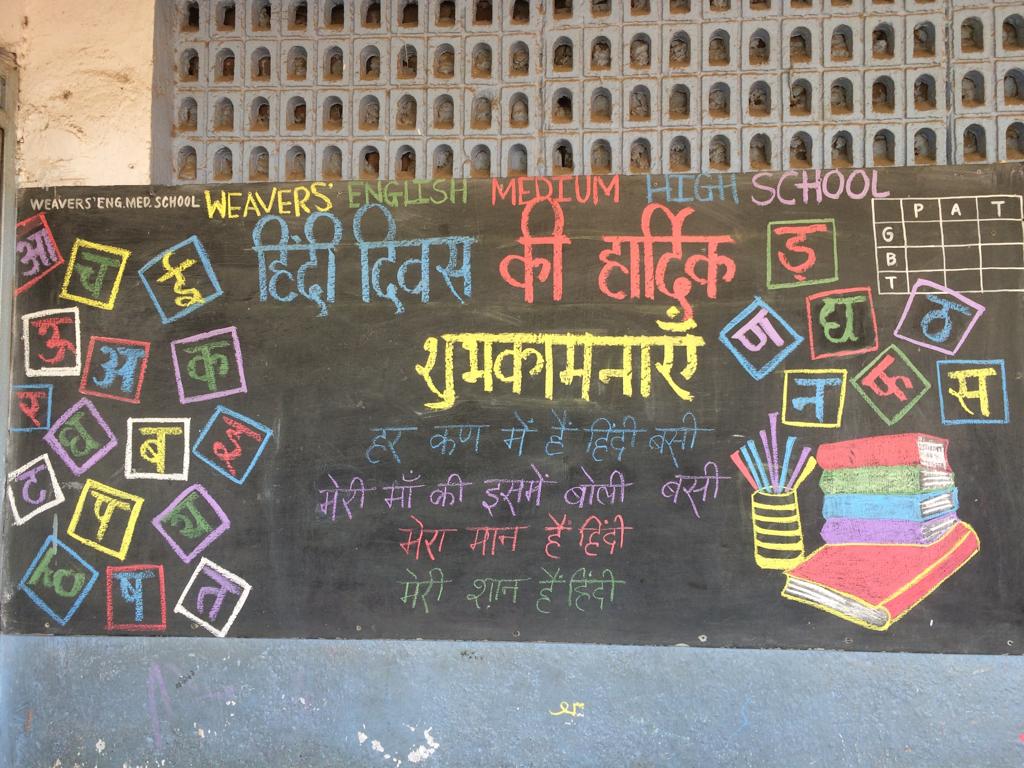 WEAVERS' ENG. MED. SCHOOL
WEAVERS' ENGLISH MEDIUM HIGH SCHOOL
हिंदी दिवस की हार्दिक
शुभकामनाएँ
हर कण में है हिंदी बसी
मेरी माँ की इसमें बोली बसी
मेरा मान हैं हिंदी
मेरी शान हैं हिंदी
P A T
G
B
T
आ
च
ई
ऊ
अ
क
र
ब
इ
ट
ष
त
ड़
ण
ठ
न
फ
स